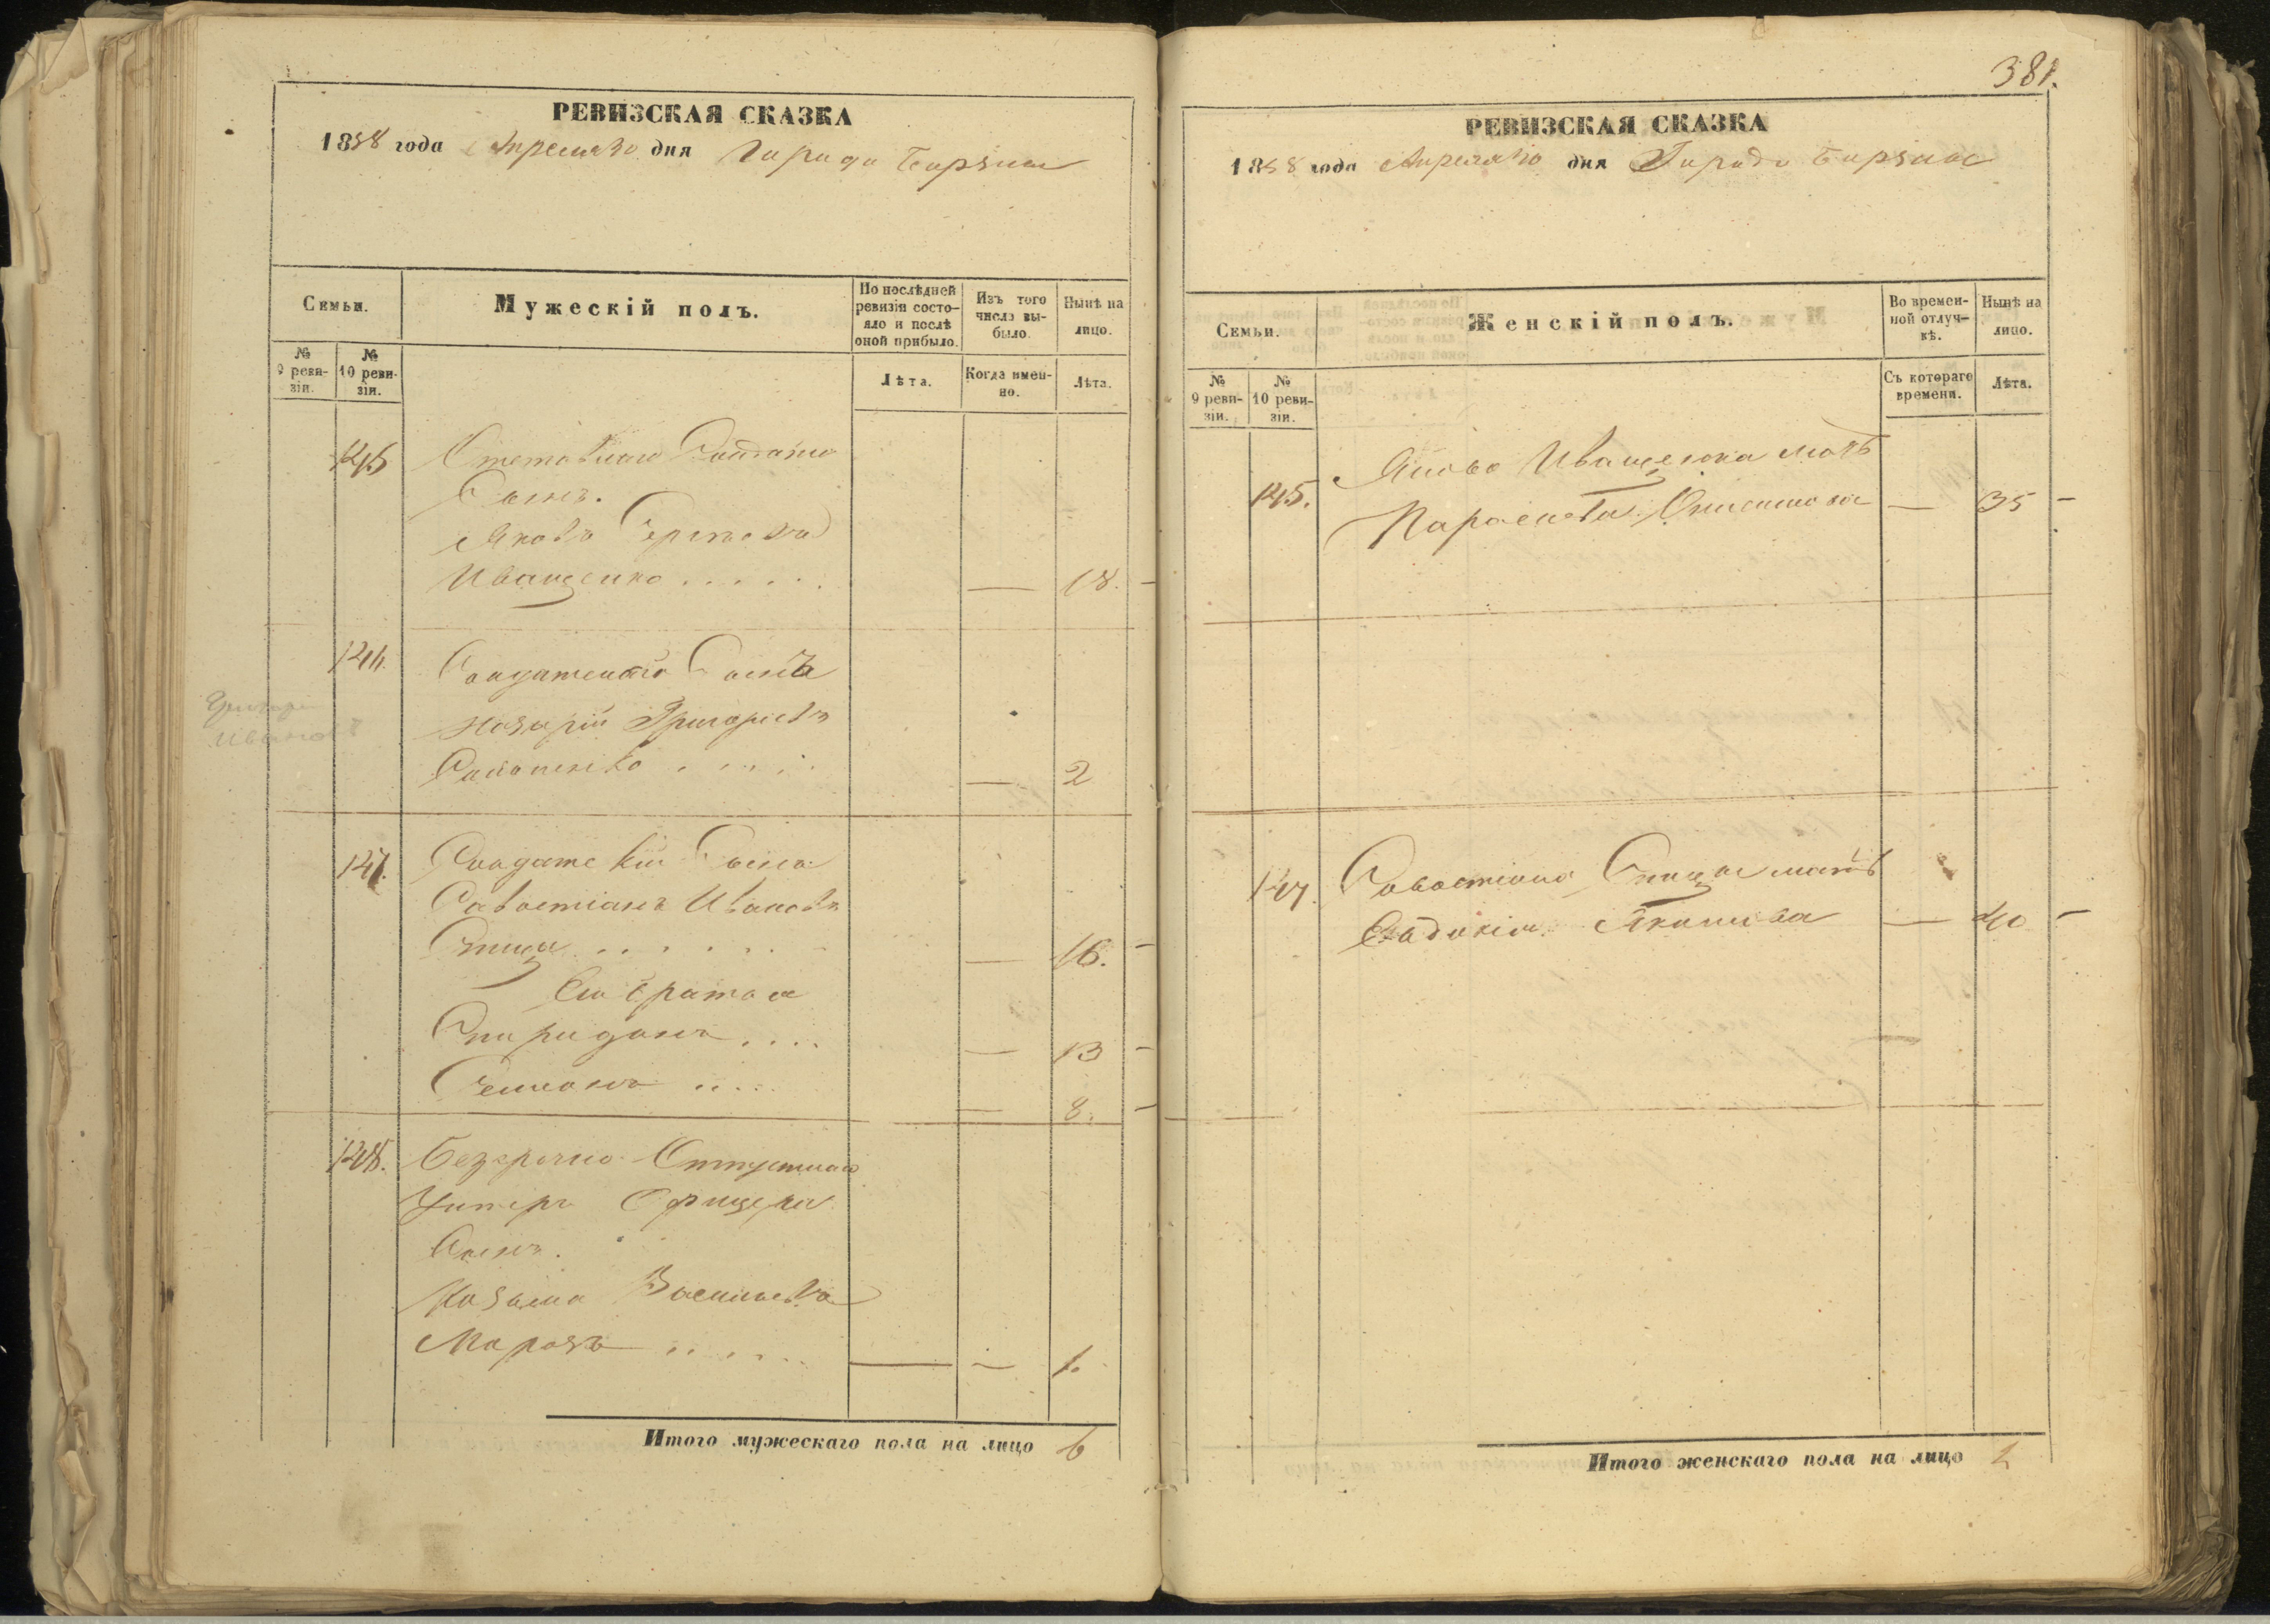 РЕВИЗСКАЯ СКАЗКА
1858 года Апреля 30 дня Города Борзны
Семьи.
Мужескій полъ.
По послѣдней ревизіи состояло и послѣ оной прибыло.
Изъ того числа выбыло.
Нынѣ на лицо.
№ 9 ревизіи.
№ 10 ревизіи.
Лѣта.
Когда именно.
Лѣта.
145
Отставнаго Солдата
Сынъ.
Яковъ
Иващенко . . . . . — 18.
146.
Солдатскаго Сына
Назарій Григорьевъ
. . . . . — 2
Григорій
Ивановъ
147.
Солдатскій Сынъ
Савостіанъ Ивановъ
Спица . . . . . . — 16.
Его братья
Спиридонъ . . . . — 13
Семионъ . . . . — 8.
148.
Безсрочно Отпускнаго
Унтеръ Офицера
Сынъ.
Козьма Васильевъ
Морозъ . . . . . — — 1.
Итого мужескаго пола на лицо 6
381.
РЕВИЗСКАЯ СКАЗКА
1858 года Апреля 30 дня Города Борзны
Семьи.
Женскій полъ.
Во временной отлучкѣ.
Нынѣ на лицо.
№ 9 ревизіи.
№ 10 ревизіи.
Съ котораго времени.
Лѣта.
145.
Якова Иващенка мать
Параскева — 35
147.
Савостіана Спицы мать
Евдокія Якимова — 40
Итого женскаго пола на лицо 2